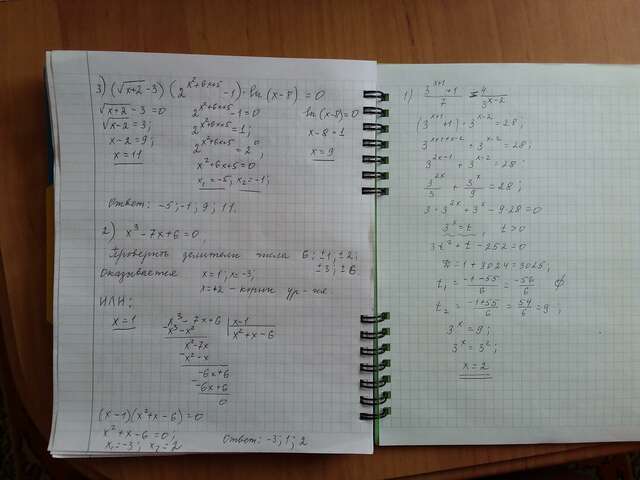 3) (√x+2 - 3) (2^(x²+6x+5) - 1) · ln (x-8) = 0
√x+2 - 3 = 0
√x-2 = 3;
x - 2 = 9;
x = 11
2^(x²+6x+5) - 1 = 0
2^(x²+6x+5) = 1;
2^(x²+6x+5) = 2^0;
x² + 6x + 5 = 0
x₁ = -5; x₂ = -1;
ln (x-8) = 0
x - 8 = 1
x = 9
Ответ: -5; -1; 9; 11.
2) x³ - 7x + 6 = 0
Проверить делители числа 6; ±1; ±2;
±3; ±6
Оказывается x = 1; x = -3;
x = +2 - корни ур-ия.
ИЛИ:
x = 1
x³ - 7x + 6 | x-1
x³ - x² | x² + x - 6
x² - 7x
x² - x
-6x + 6
-6x + 6
0
(x-1)(x² + x - 6) = 0
x² + x - 6 = 0;
x₁ = -3; x₂ = 2
Ответ: -3; 1; 2
1) (3^(x+1) + 1)/7 = 4/3^(x-2)
(3^(x+1) + 1) · 3^(x-2) = 28;
3^(x+1+x-2) + 3^(x-2) = 28;
3^(2x-1) + 3^(x-2) = 28;
3^(2x)/3 + 3^x/9 = 28;
3 · 3^(2x) + 3^x - 9·28 = 0
3^x = t, t > 0
3t² + t - 252 = 0
D = 1 + 3024 = 3025;
t₁ = (-1-55)/6 = -56/6 ∅
t₂ = (-1+55)/6 = 54/6 = 9;
3^x = 9;
3^x = 3²;
x = 2